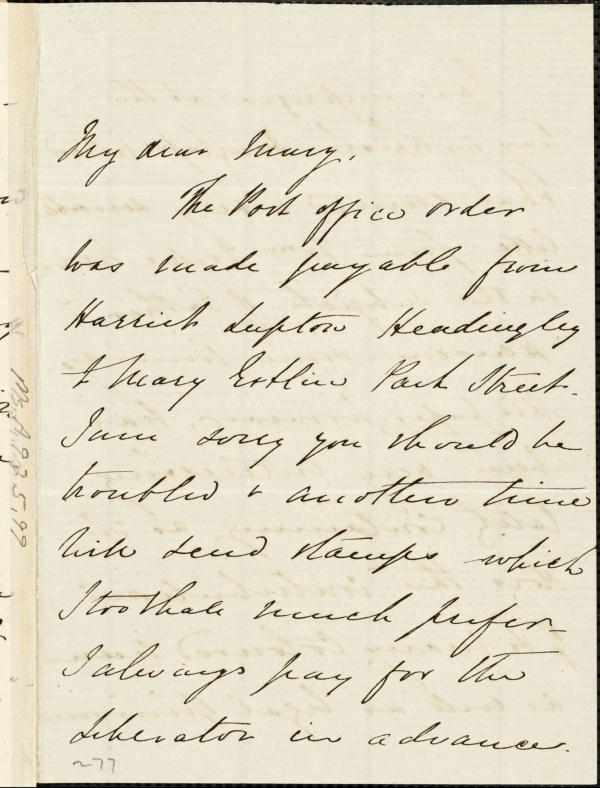 My dear Mary,
The Post office order
was made payable from
Harriet Lupton Headingley
to Mary Estlin Park Street.
I am sorry you should be
troubled & another time
will send stamps which
I too shall much prefer_
I always pay for the
Liberator in advance.
~77